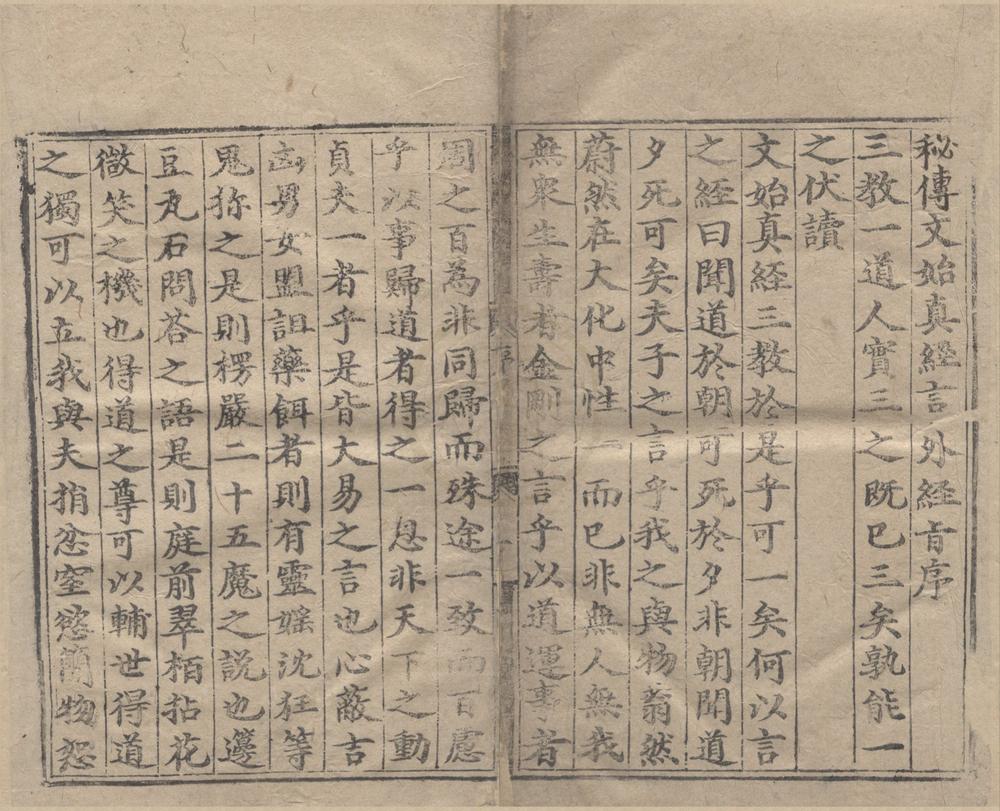 秘傳文始真經言外經旨序
三教一道人實三之既已三矣孰能一
之伏讀
文始真經三教於是乎可一矣何以言
之經曰聞道於朝可死於夕非朝聞道
夕死可矣夫子之言乎我之與物蓊然
蔚然在大化中性一而已非無人無我
無衆生壽者金剛之言乎以道運事者
周之百爲非同歸而殊途一致而百慮
乎以事歸道者得之一息非天下之動
貞夫一者乎是皆大易之言也心蔽吉
凶男女盟詛藥餌者則有靈婬沈狂等
鬼攝之是則楞嚴二十五魔之説也邊
豆瓦石問荅之語是則庭前翠栢拈花
微笑之機也得道之尊可以輔世得道
之獨可以立我與夫捎忿窒慾簡物恕
序
一